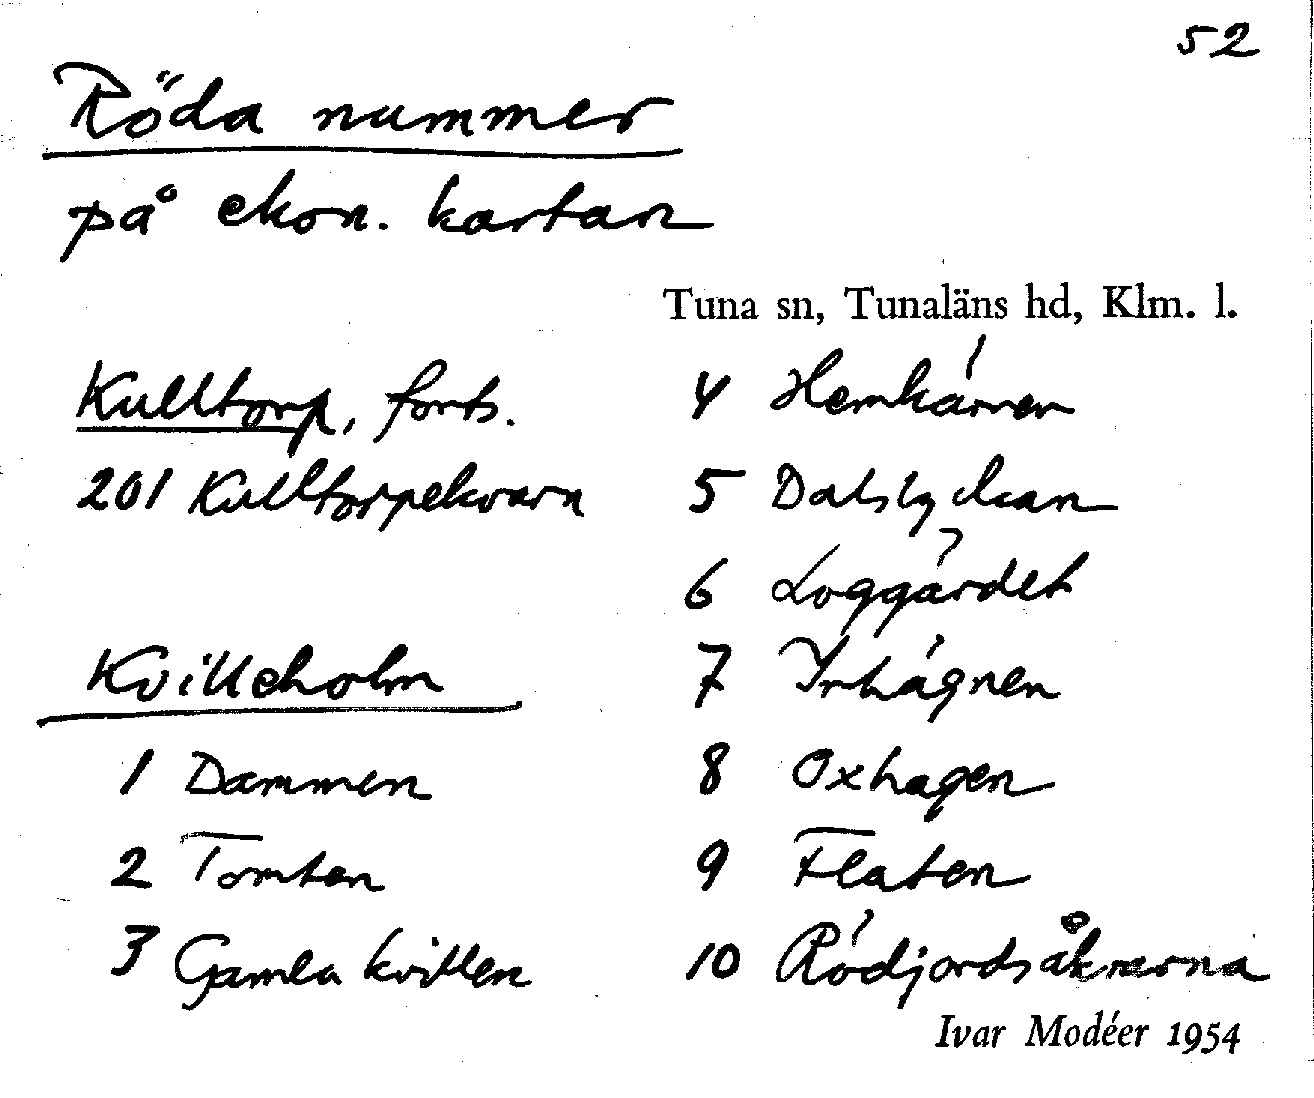 52
Röda nummer
på ekon. kartan
Tuna sn, Tunaläns hd, Klm. l.
Kulltorp, forts.
201 Kulltorpekvarn
Kvilleholm
1 Dammen
2 Tomten
3 Gamla kvillen
4 Hemkärren
5 Dalslyckan
6 Loggärdet
7 Yrhägnen
8 Oxhagen
9 Flaten
10 Rödjordsåkrarna
Ivar Modéer 1954